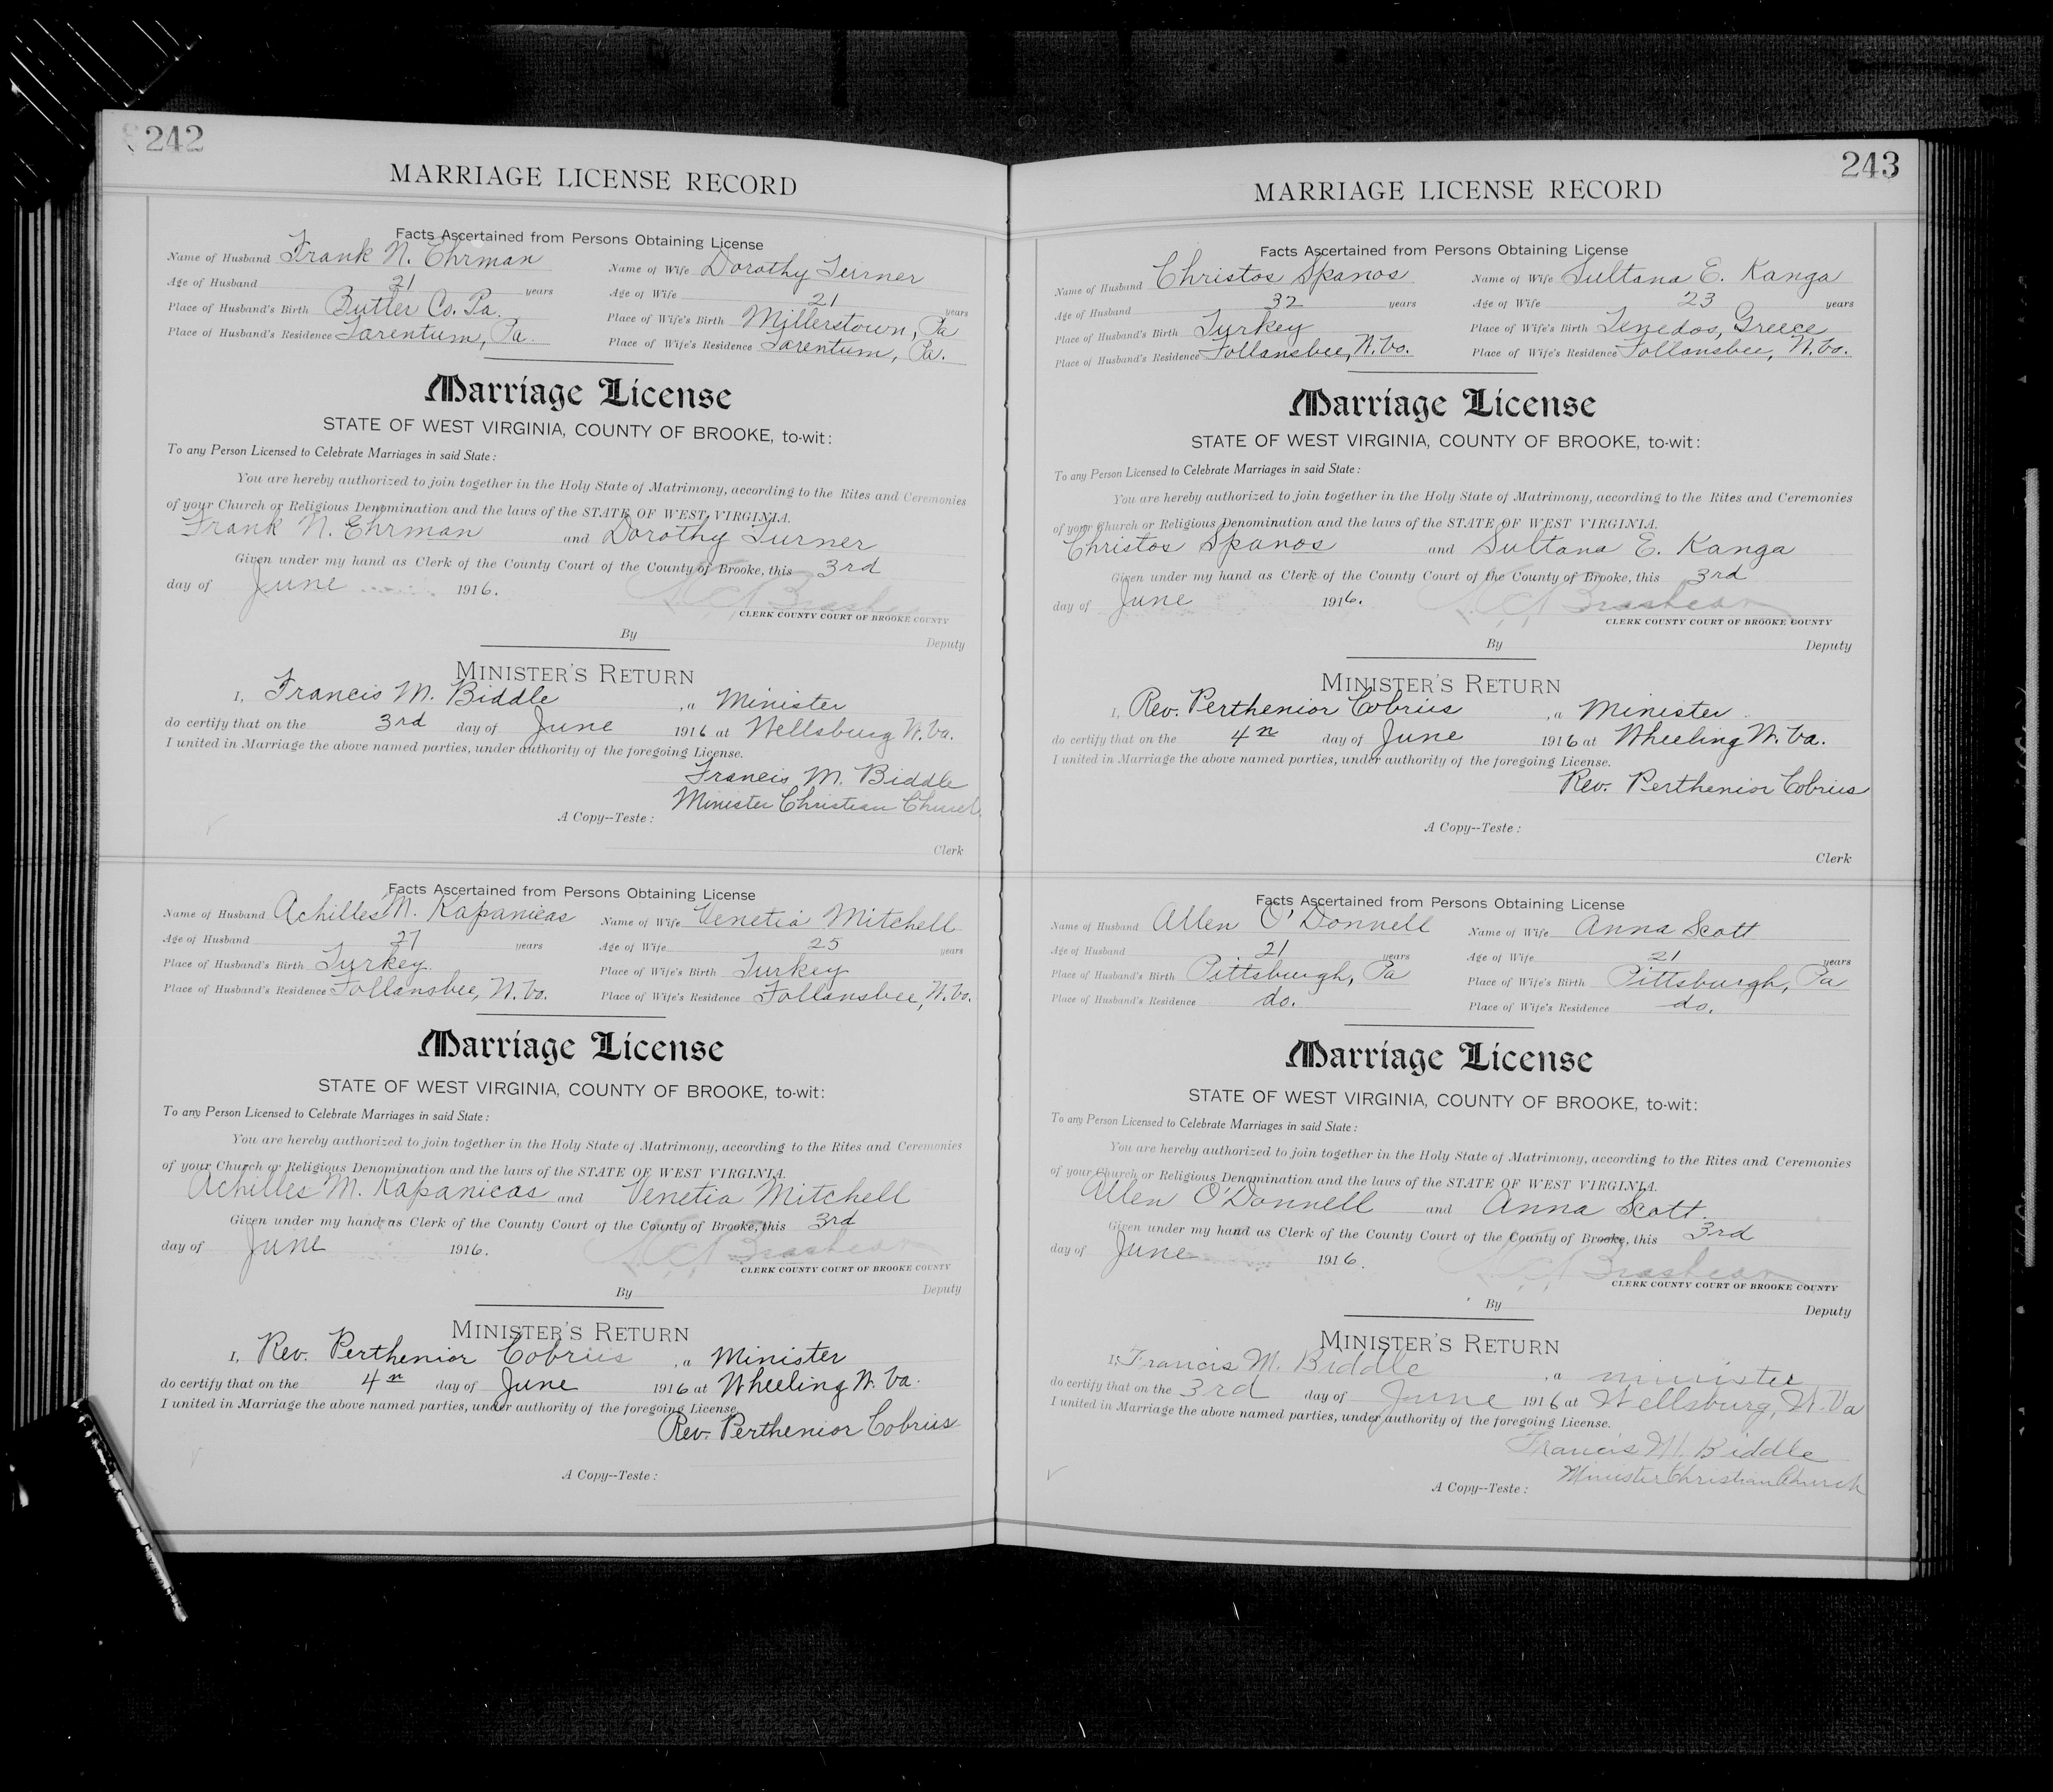 242
MARRIAGE LICENSE RECORD
Facts Ascertained from Persons Obtaining License
Name of Husband Frank N. Ehrman Name of Wife Dorothy Turner
Age of Husband 21 years Age of Wife 21 years
Place of Husband's Birth Butler Co. Pa. Place of Wife's Birth Millerstown, Pa
Place of Husband's Residence Tarentum, Pa. Place of Wife's Residence Tarentum, Pa.
Marriage License
STATE OF WEST VIRGINIA, COUNTY OF BROOKE, to-wit:
To any Person Licensed to Celebrate Marriages in said State:
You are hereby authorized to join together in the Holy State of Matrimony, according to the Rites and Ceremonies
of your Church or Religious Denomination and the laws of the STATE OF WEST VIRGINIA.
Frank N. Ehrman and Dorothy Turner
Given under my hand as Clerk of the County Court of the County of Brooke, this 3rd
day of June 1916.
CLERK COUNTY COURT OF BROOKE COUNTY
By Deputy
MINISTER'S RETURN
I, Francis M. Biddle , a Minister
do certify that on the 3rd day of June 1916 at Wellsburg W. Va.
I united in Marriage the above named parties, under authority of the foregoing License.
Francis M. Biddle
Minister Christian Church
A Copy--Teste:
Clerk
Facts Ascertained from Persons Obtaining License
Name of Husband Achilles M. Kapanicas Name of Wife Venetia Mitchell
Age of Husband 27 years Age of Wife 25 years
Place of Husband's Birth Turkey Place of Wife's Birth Turkey
Place of Husband's Residence Follansbee, W. Va. Place of Wife's Residence Follansbee, W. Va.
Marriage License
STATE OF WEST VIRGINIA, COUNTY OF BROOKE, to-wit:
To any Person Licensed to Celebrate Marriages in said State:
You are hereby authorized to join together in the Holy State of Matrimony, according to the Rites and Ceremonies
of your Church or Religious Denomination and the laws of the STATE OF WEST VIRGINIA.
Achilles M. Kapanicas and Venetia Mitchell
Given under my hand as Clerk of the County Court of the County of Brooke, this 3rd
day of June 1916.
CLERK COUNTY COURT OF BROOKE COUNTY
By Deputy
MINISTER'S RETURN
I, Rev. Perthenior Cobrius , a Minister
do certify that on the 4th day of June 1916 at Wheeling W. Va.
I united in Marriage the above named parties, under authority of the foregoing License.
Rev. Perthenior Cobrius
A Copy--Teste:
243
MARRIAGE LICENSE RECORD
Facts Ascertained from Persons Obtaining License
Name of Husband Christos Spanos Name of Wife Sultana E. Kanga
Age of Husband 32 years Age of Wife 23 years
Place of Husband's Birth Turkey Place of Wife's Birth Tenedos, Greece
Place of Husband's Residence Follansbee, W. Va. Place of Wife's Residence Follansbee, W. Va.
Marriage License
STATE OF WEST VIRGINIA, COUNTY OF BROOKE, to-wit:
To any Person Licensed to Celebrate Marriages in said State:
You are hereby authorized to join together in the Holy State of Matrimony, according to the Rites and Ceremonies
of your Church or Religious Denomination and the laws of the STATE OF WEST VIRGINIA.
Christos Spanos and Sultana E. Kanga
Given under my hand as Clerk of the County Court of the County of Brooke, this 3rd
day of June 1916.
CLERK COUNTY COURT OF BROOKE COUNTY
By Deputy
MINISTER'S RETURN
I, Rev. Perthenior Cobrius , a Minister
do certify that on the 4th day of June 1916 at Wheeling W. Va.
I united in Marriage the above named parties, under authority of the foregoing License.
Rev. Perthenior Cobrius
A Copy--Teste:
Clerk
Facts Ascertained from Persons Obtaining License
Name of Husband Allen O'Donnell Name of Wife Anna Scott
Age of Husband 21 years Age of Wife 21 years
Place of Husband's Birth Pittsburgh, Pa Place of Wife's Birth Pittsburgh, Pa
Place of Husband's Residence do. Place of Wife's Residence do.
Marriage License
STATE OF WEST VIRGINIA, COUNTY OF BROOKE, to-wit:
To any Person Licensed to Celebrate Marriages in said State:
You are hereby authorized to join together in the Holy State of Matrimony, according to the Rites and Ceremonies
of your Church or Religious Denomination and the laws of the STATE OF WEST VIRGINIA.
Allen O'Donnell and Anna Scott.
Given under my hand as Clerk of the County Court of the County of Brooke, this 3rd
day of June 1916.
CLERK COUNTY COURT OF BROOKE COUNTY
By Deputy
MINISTER'S RETURN
I, Francis M. Biddle , a minister
do certify that on the 3rd day of June 1916 at Wellsburg, W. Va
I united in Marriage the above named parties, under authority of the foregoing License.
Francis M. Biddle
Minister Christian Church
A Copy--Teste: